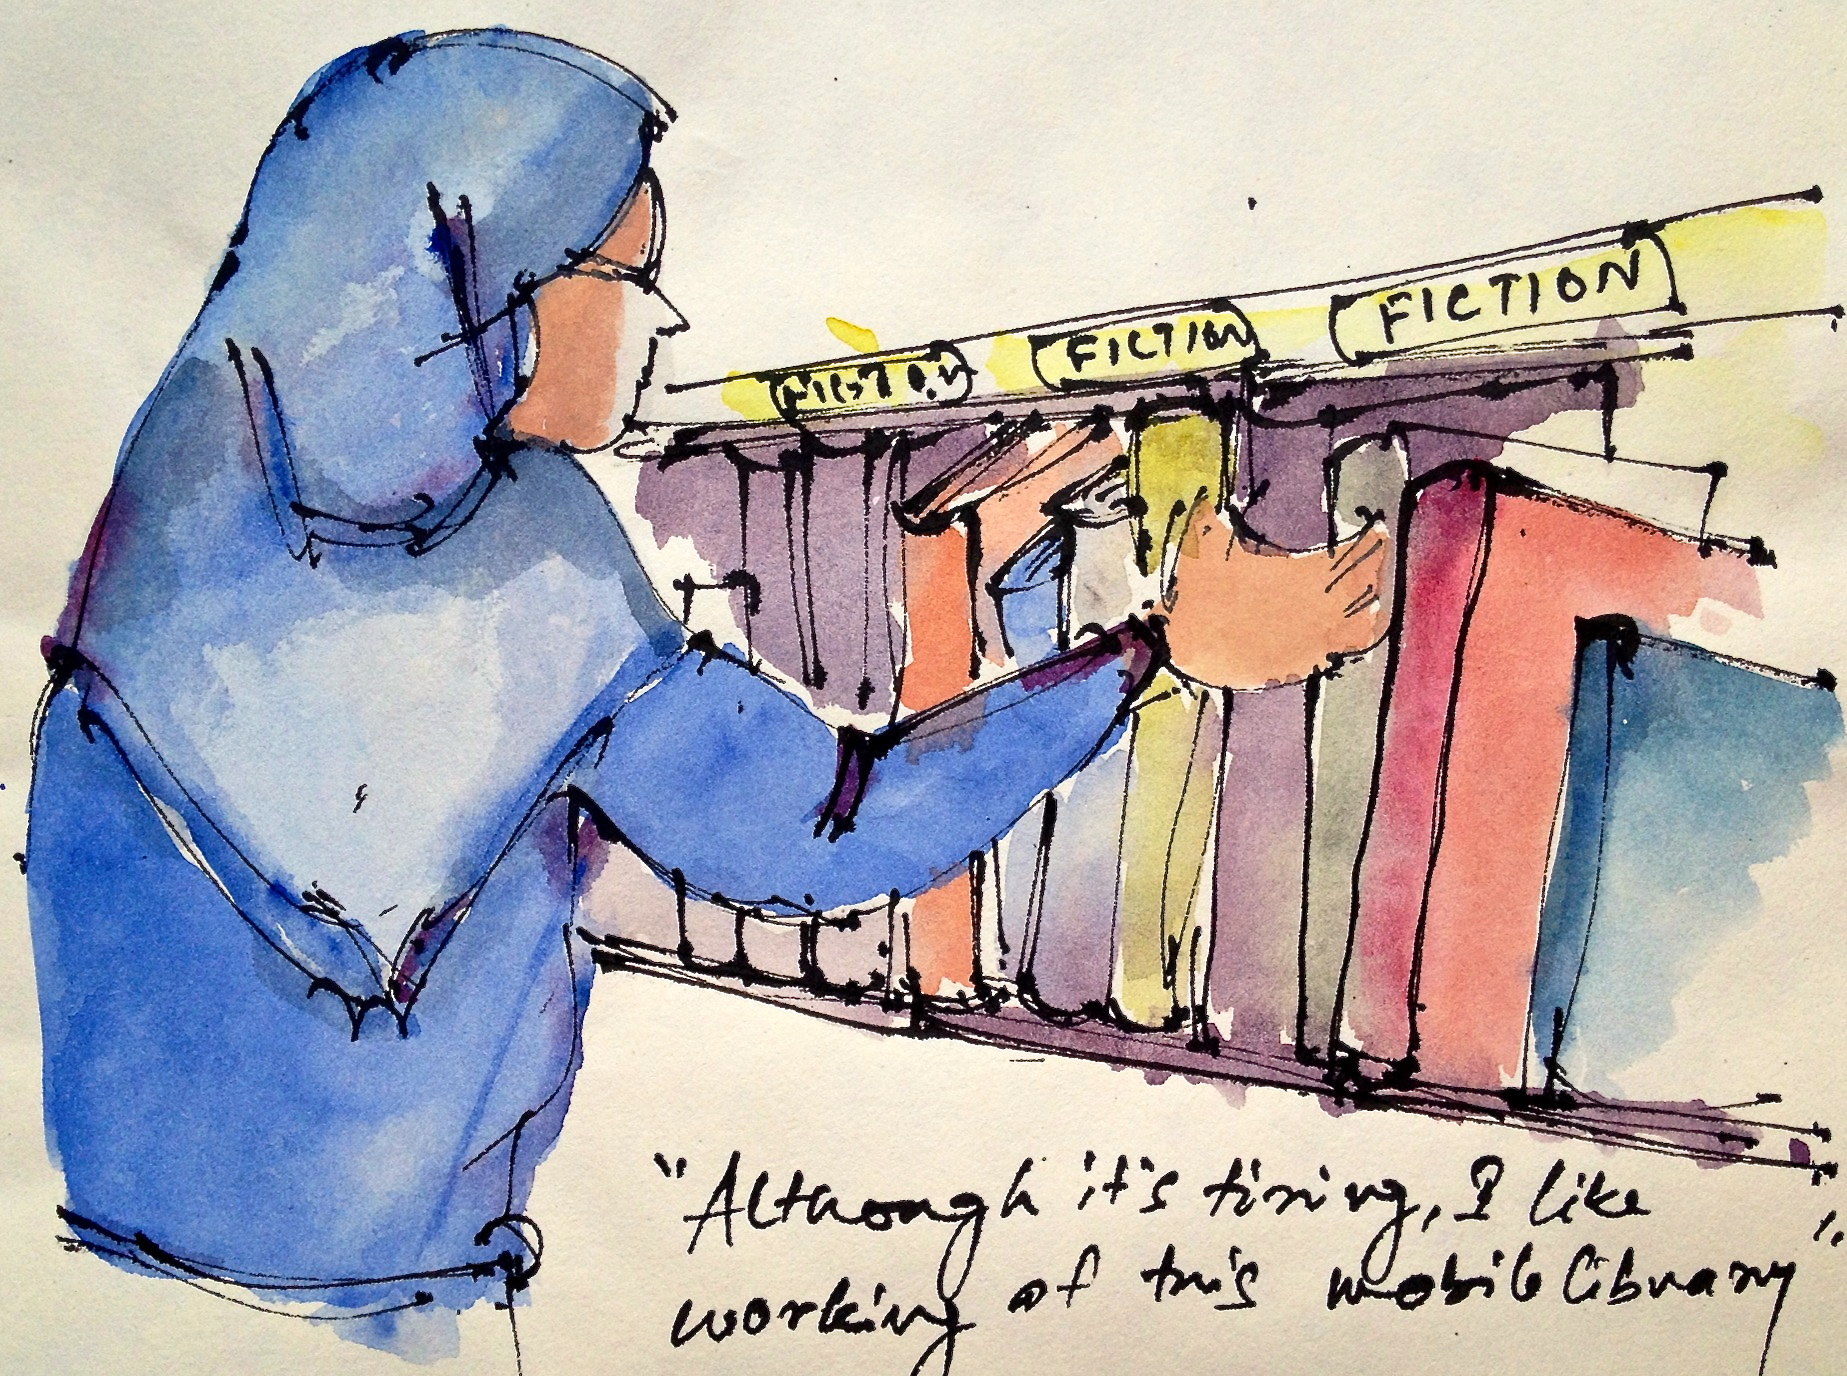 FICTION
FICTION
"Although it's tiring, I like
working at this mobile library"